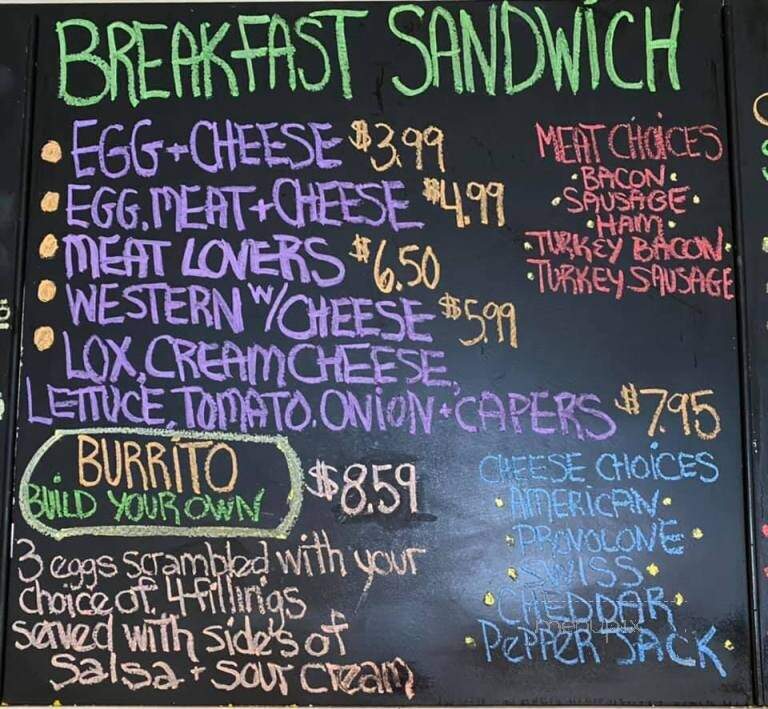 BREAKFAST SANDWICH
EGG+CHEESE $3.99
EGG, MEAT+CHEESE $4.99
MEAT LOVERS $6.50
WESTERN W/CHEESE $5.99
LOX, CREAM CHEESE,
LETTUCE, TOMATO, ONION+CAPERS $7.95
MEAT CHOICES
BACON
SAUSAGE
HAM
TURKEY BACON
TURKEY SAUSAGE
BURRITO
BUILD YOUR OWN
$8.59
3 eggs scrambled with your
choice of 4 fillings
served with sides of
Salsa + sour cream
CHEESE CHOICES
AMERICAN
PROVOLONE
SWISS
CHEDDAR
PEPPER JACK
menupix